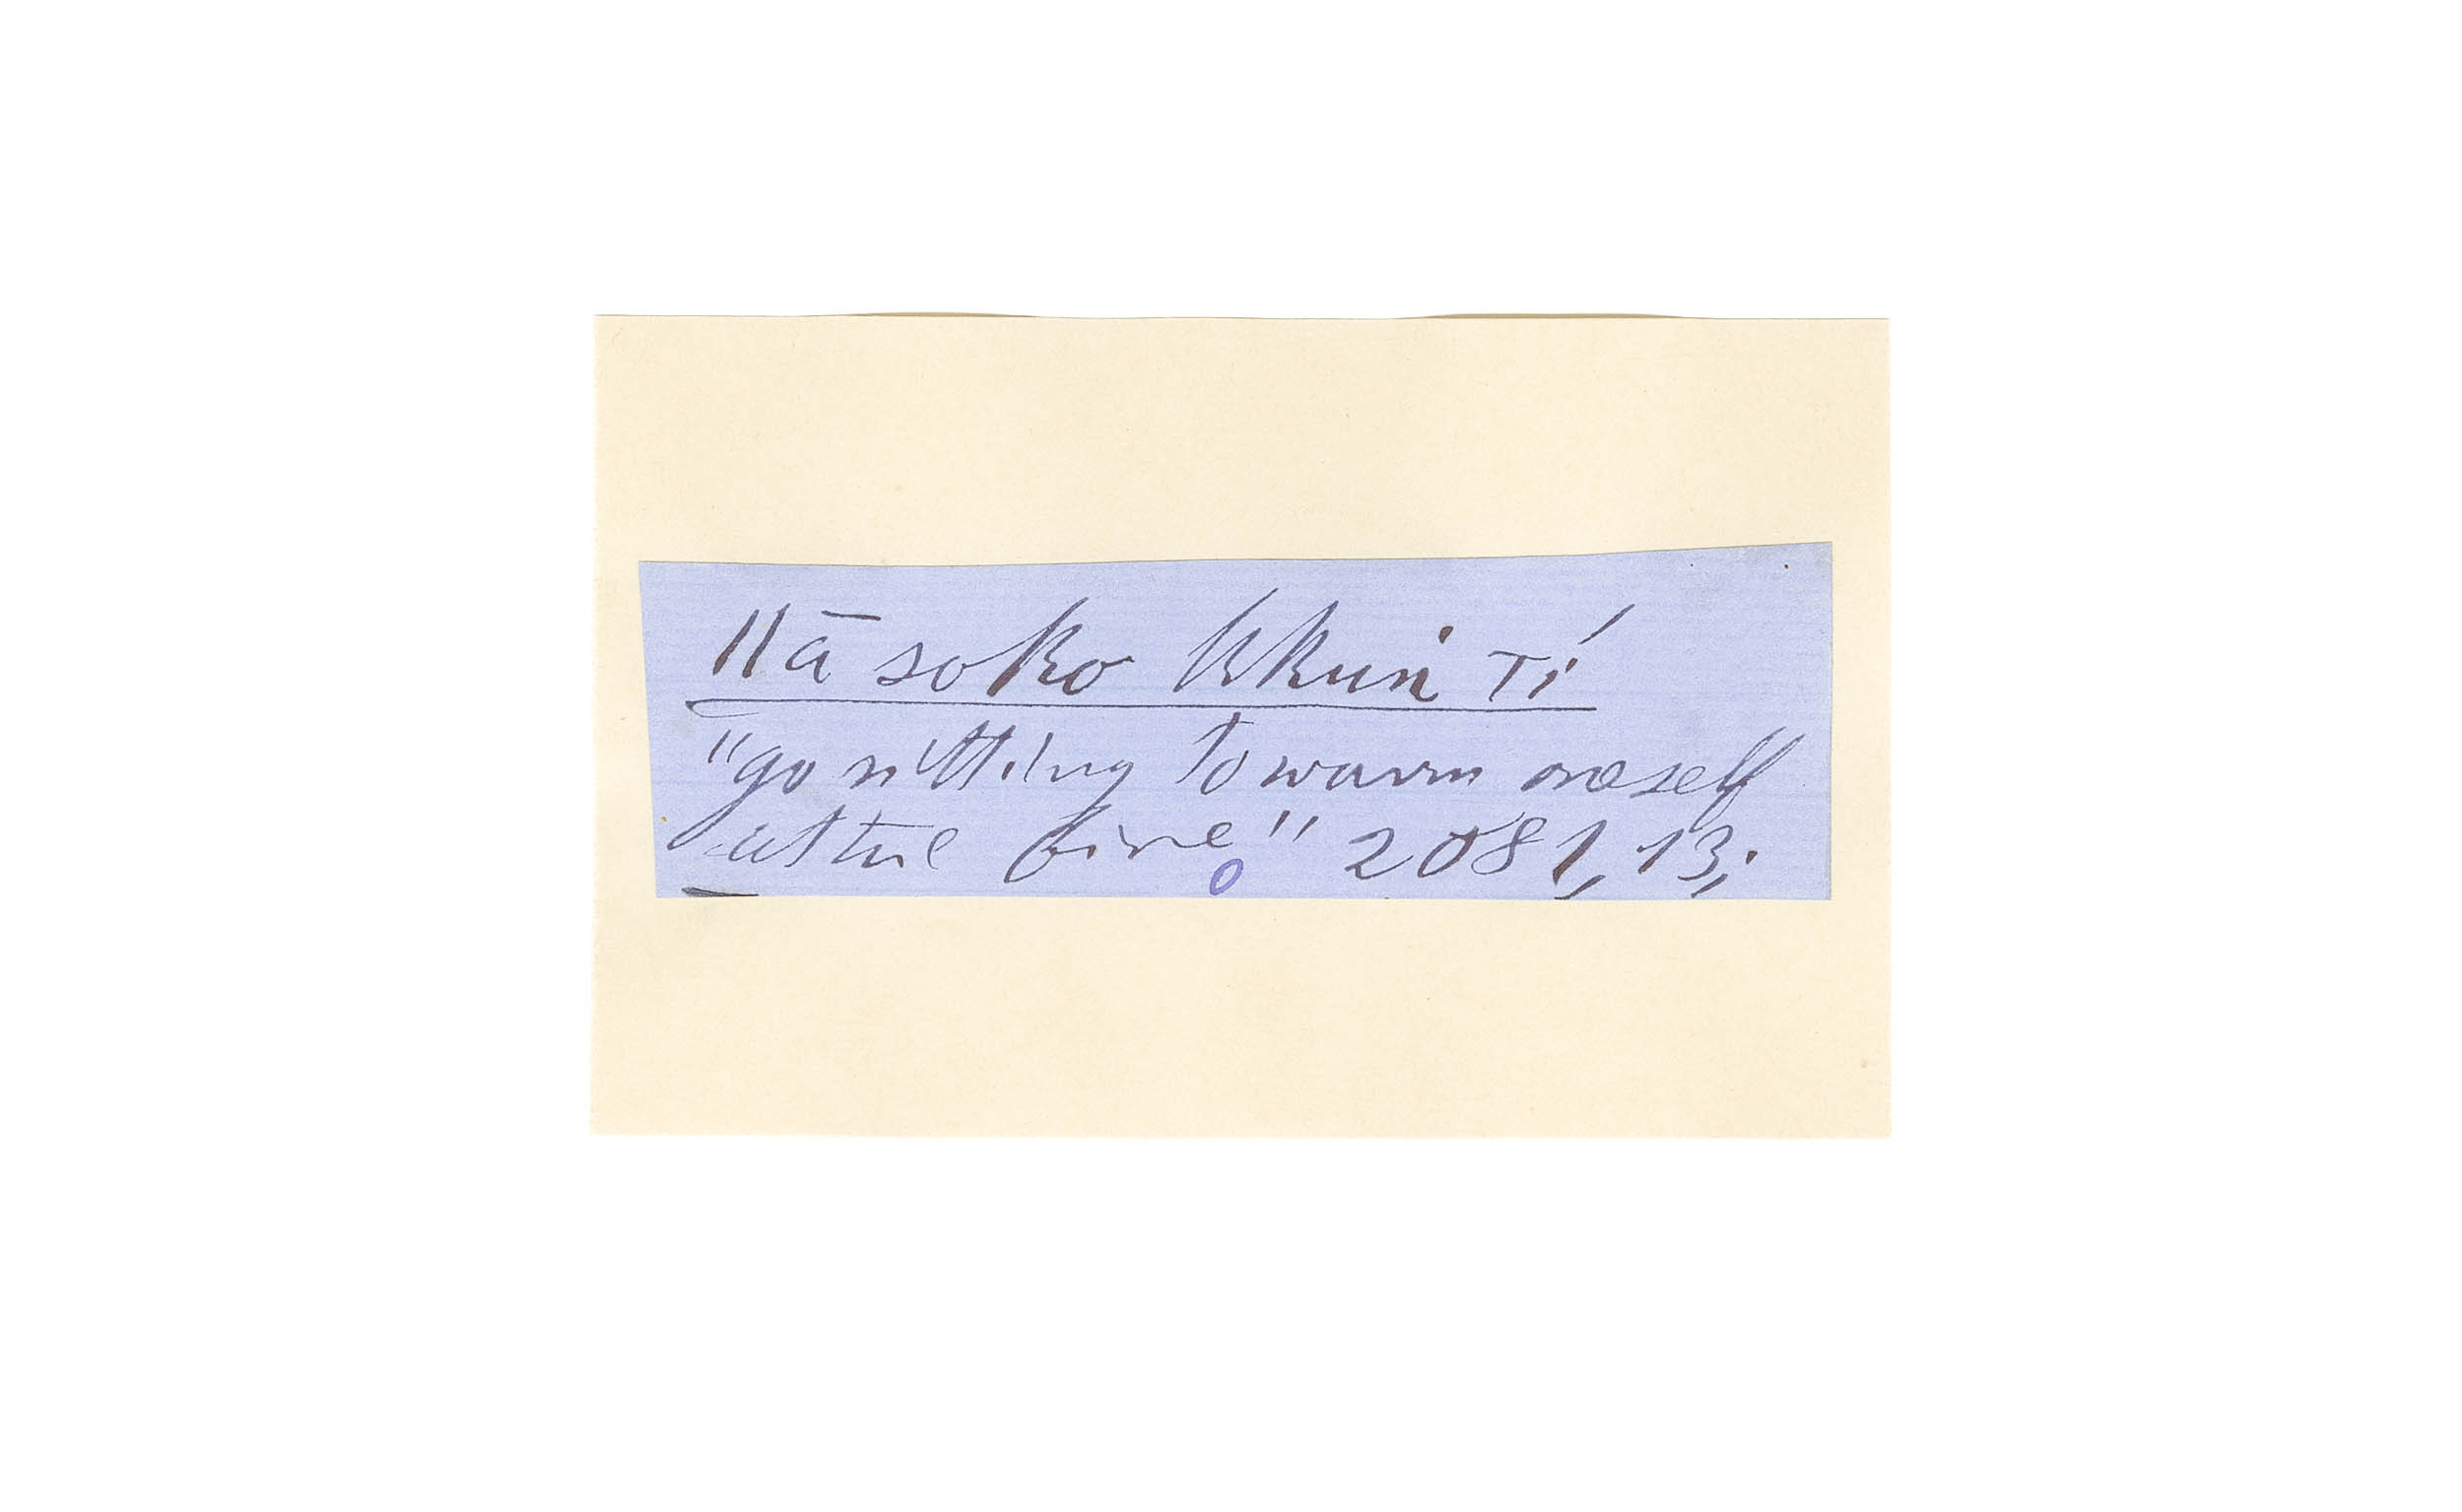 ǁā soko kkuṅ tí
"go sitting to warm oneself
at the fire" 2081, 13;